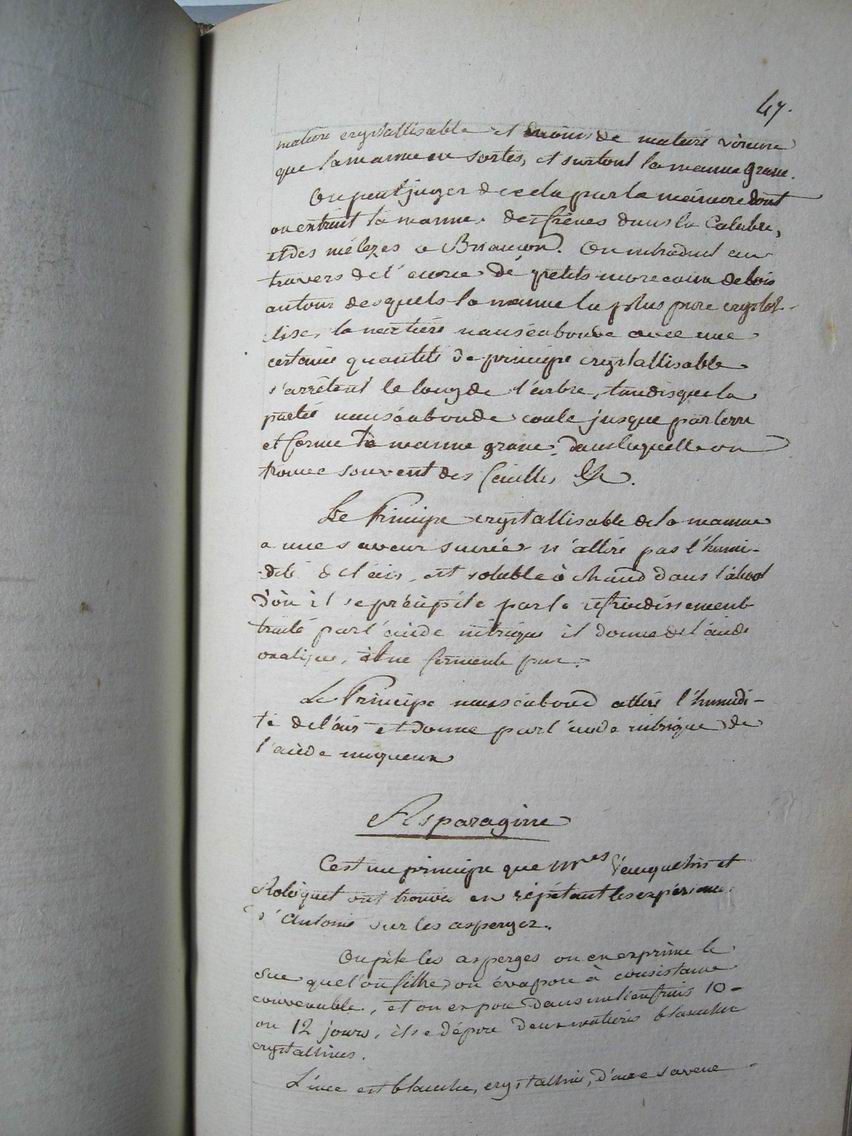 47.
matiere crystallisable et moins de matiere vireuse
que la manne en sortes, et surtout la manne grasse.
On peut juger de cela par la maniere dont
on extrait la manne des frênes dans la Calabre,
et des mélezes a Briancon. On introduit au
travers de l'ecorce de petits morceaux de bois
autour desquels la manne la plus pure crystal-
lise, la matiere nauséabonde avec une
certaine quantité de principe crystallisable
s'arrêtent le long de l'arbre, tandis que la
partie nauséabonde coule jusque par terre
et forme la manne grasse, dans laquelle on
trouve souvent des feuilles &c.
Le Principe crystallisable de la manne
a une saveur sucrée n'attire pas l'humi-
dité de l'air, est soluble à chaud dans l'alcool
d'où il se précipite par le refroidissement
traité par l'acide nitrique il donne de l'acide
oxalique, il ne fermente pas.
Le Principe nauséabond attire l'humidi-
té de l'air et donne par l'acide nitrique de
l'acide muqueux
Asparagine
C'est un principe que Mrs Vauquelin et
Robiquet ont trouvé en répétant les expériences
d'Antoine sur les asperges.
On pile les asperges on en exprime le
suc que l'on filtre, on évapore à consistance
convenable, et on expose dans un lieu frais 10
ou 12 jours, il se dépose deux matieres blanches
crystallines.
L'une est blanche, crystalline, d'une saveur